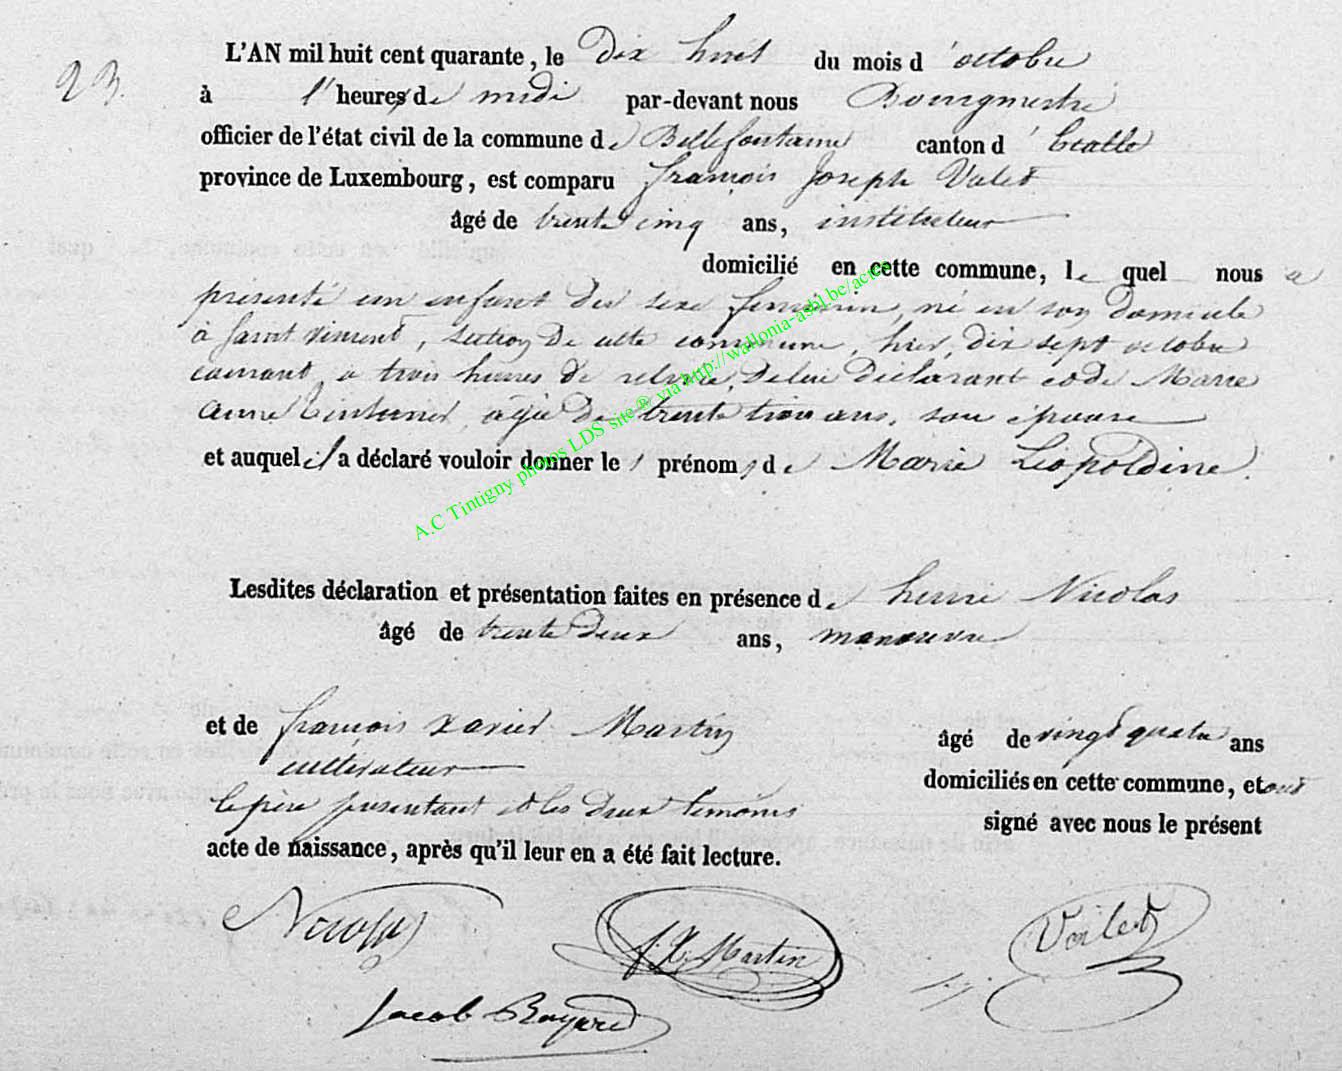 23.
L'AN mil huit cent quarante, le Dix huit du mois d'octobre
à l'heures de midi par-devant nous Bourgmestre
officier de l'état civil de la commune de Bellefontaine canton d'Etalle
province de Luxembourg, est comparu françois Joseph Valet
âgé de trente cinq ans, instituteur
domicilié en cette commune, le quel nous a
présenté un enfant du sexe feminin, né en son domicile
à saint vincent, section de cette commune, hier, dix sept octobre
courant, à trois heures de relevée, de lui déclarant et de Marie
anne, agée de trente trois ans, son épouse
et auquel il a déclaré vouloir donner les prénoms de Marie Léopoldine
Lesdites déclaration et présentation faites en présence de henri Nicolas
âgé de trente deux ans, manœuvre
et de françois xavier Martin âgé de vingt quatre ans
cultivateur domiciliés en cette commune, et ont
le père présentant et les deux temoins signé avec nous le présent
acte de naissance, après qu'il leur en a été fait lecture.
Nicolas f. X. Martin Valet
Jacob Bayard
A.C Tintigny photos LDS site® via http://wallonia-asbl.be/actes